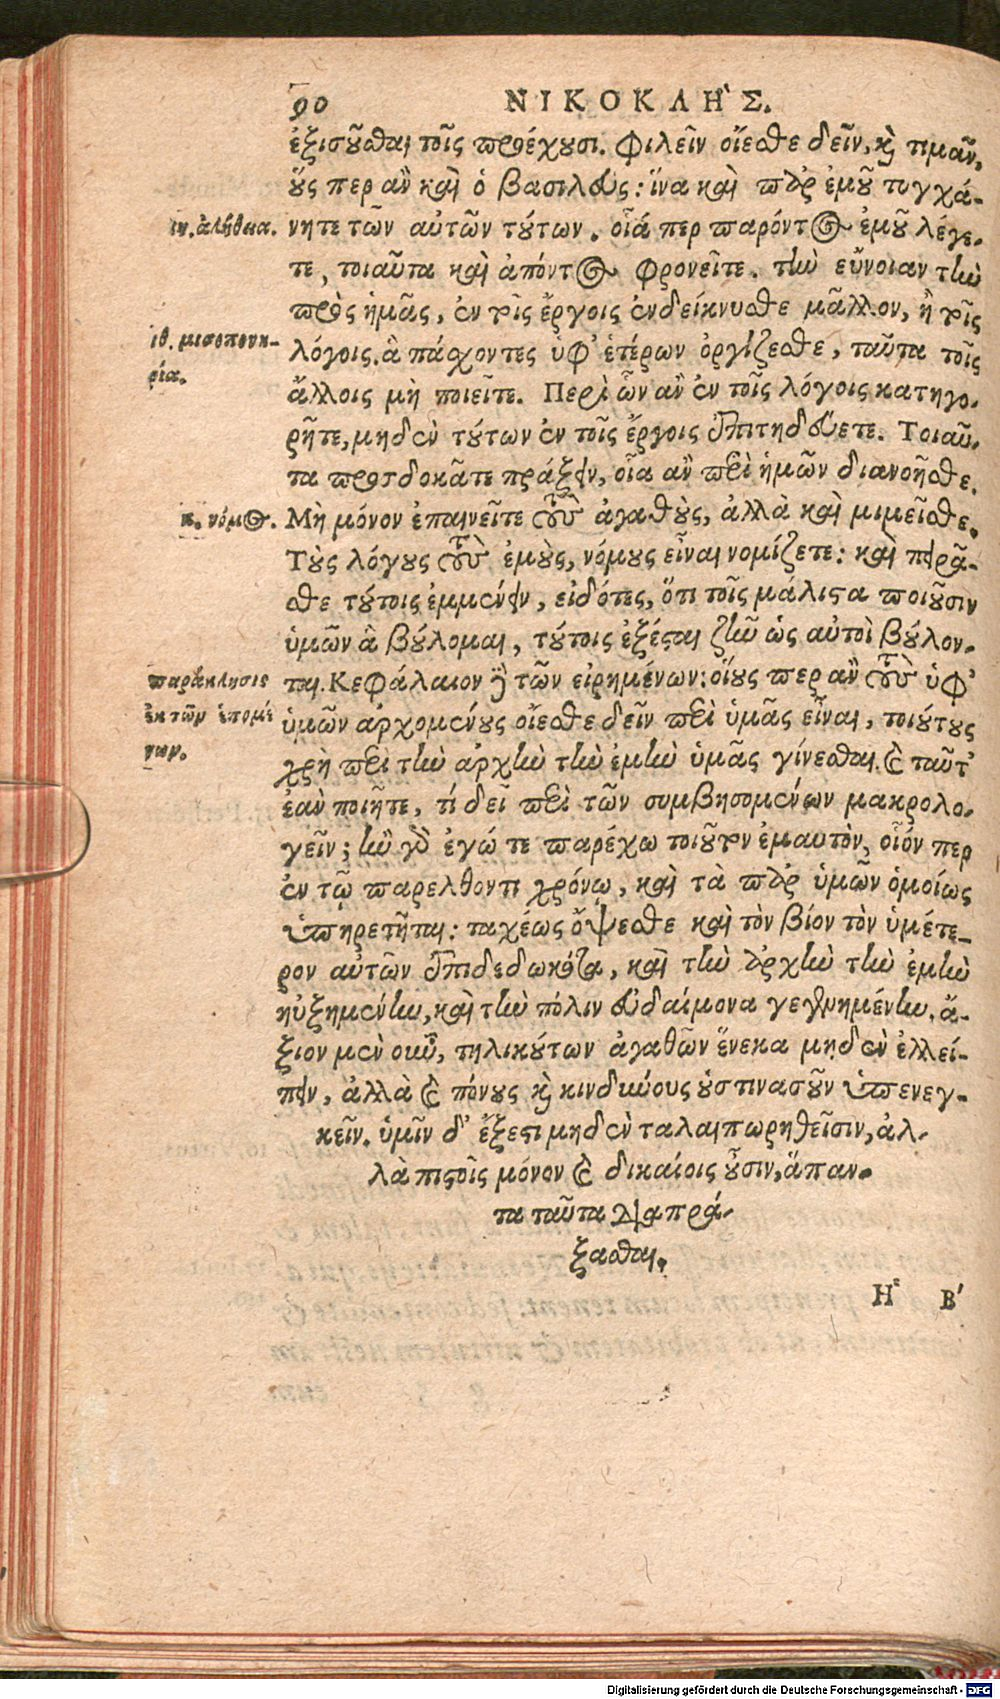 90 ΝΙΚΟΚΛΗ͂Σ.
ἐξισοῦσθαι τοῖς προέχουσι. Φιλεῖν οἴεσθε δεῖν, καὶ τιμᾶν,
οὕς περ ἂν καὶ ὁ βασιλεύς: ἵνα καὶ παρ' ἐμοῦ τυγχά-
ιη. ἀλήθεια.
νητε τῶν αὐτῶν τούτων. οἷά περ παρόντος ἐμοῦ λέγε-
τε, τοιαῦτα καὶ ἀπόντος φρονεῖτε. τὴν εὔνοιαν τὴν
πρὸς ἡμᾶς, ἐν τοῖς ἔργοις ἐνδείκνυσθε μᾶλλον, ἢ τοῖς
ιθ. μισοπονη-
ρία.
λόγοις. ἃ πάσχοντες ὑφ' ἑτέρων ὀργίζεσθε, ταῦτα τοῖς
ἄλλοις μὴ ποιεῖτε. Περὶ ὧν ἂν ἐν τοῖς λόγοις κατηγο-
ρῆτε, μηδὲν τούτων ἐν τοῖς ἔργοις ἐπιτηδεύετε. Τοιαῦ-
τα προσδοκᾶτε πράξειν, οἷα ἂν περὶ ἡμῶν διανοῆσθε.
κ. νόμος.
Μὴ μόνον ἐπαινεῖτε τοὺς ἀγαθοὺς, ἀλλὰ καὶ μιμεῖσθε.
Τοὺς λόγους τοὺς ἐμοὺς, νόμους εἶναι νομίζετε: καὶ πειρᾶ-
σθε τούτοις ἐμμένειν, εἰδότες, ὅτι τοῖς μάλιστα ποιοῦσιν
ὑμῶν ἃ βούλομαι, τούτοις ἐξέσται ζῆν ὡς αὐτοὶ βούλον-
παράκλησις
ἐκ τῶν ἑπομέ
νων.
ται. Κεφάλαιον δὲ τῶν εἰρημένων: οἵους περ ἂν τοὺς ὑφ'
ὑμῶν ἀρχομένους οἴεσθε δεῖν περὶ ὑμᾶς εἶναι, τοιούτους
χρὴ περὶ τὴν ἀρχὴν τὴν ἐμὴν ὑμᾶς γίνεσθαι. καὶ ταῦτ'
ἐὰν ποιῆτε, τί δεῖ περὶ τῶν συμβησομένων μακρολο-
γεῖν; ἢν γὰρ ἐγώ τε παρέχω τοιοῦτον ἐμαυτὸν, οἷόν περ
ἐν τῷ παρελθόντι χρόνῳ, καὶ τὰ παρ' ὑμῶν ὁμοίως
ὑπηρετῆται: ταχέως ὄψεσθε καὶ τὸν βίον τὸν ὑμέτε-
ρον αὐτῶν ἐπιδεδωκότα, καὶ τὴν ἀρχὴν τὴν ἐμὴν
ηὐξημένην, καὶ τὴν πόλιν εὐδαίμονα γεγενημένην. ἄ-
ξιον μὲν οὖν, τηλικούτων ἀγαθῶν ἕνεκα μηδὲν ἐλλεί-
πειν, ἀλλὰ καὶ πόνους καὶ κινδύνους οὑστινασοῦν ὑπενεγ-
κεῖν. ὑμῖν δ' ἔξεστι μηδὲν ταλαιπωρηθεῖσιν, ἀλ-
λὰ πιστοῖς μόνον καὶ δικαίοις οὖσιν, ἅπαν-
τα ταῦτα διαπρά-
ξασθαι.
Η῾ Β'
Digitalisierung gefördert durch die Deutsche Forschungsgemeinschaft - DFG